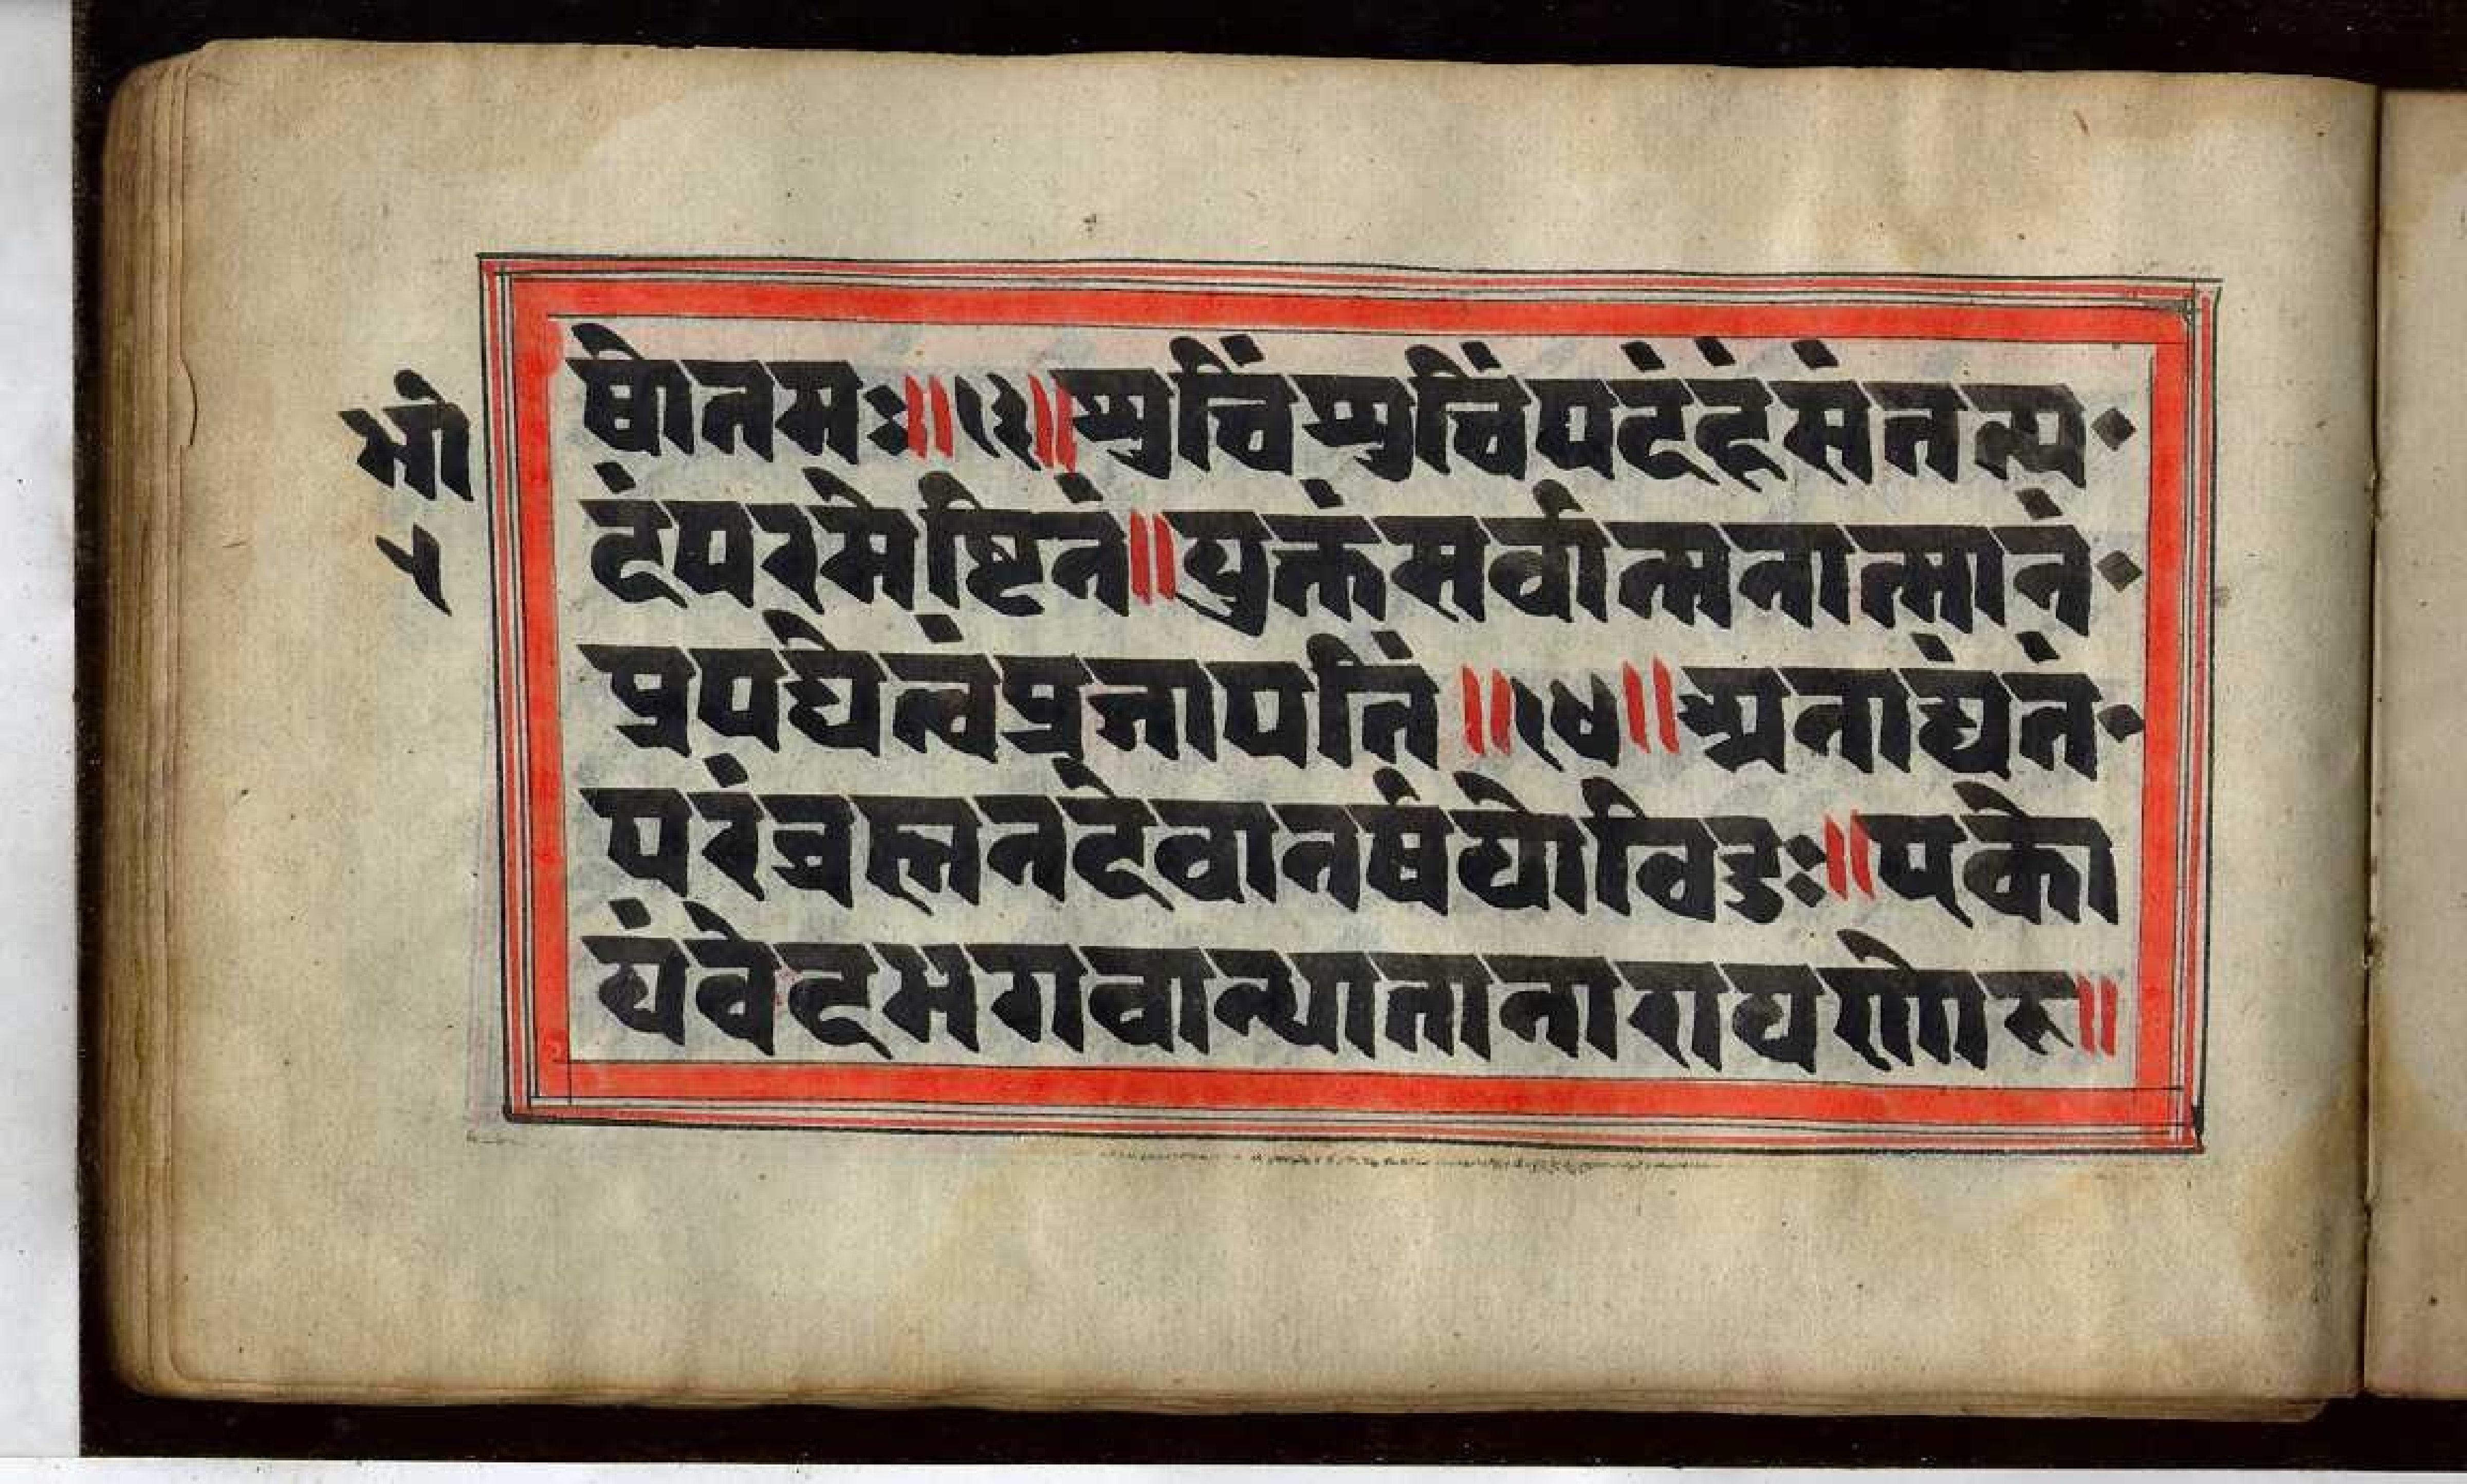 षोतमः॥१३॥शुचिंशुचिंपदंहंसंतत्प
दंपरमेष्टिनं॥युक्तंसर्वात्मनात्मानं
प्रपद्येत्वंप्रजापतिं॥१४॥अनाद्यंतं
परंब्रह्मनदेवानर्षयोविदुः॥एको
यंवेदभगवान्धातानारायणोह॥
भी
५